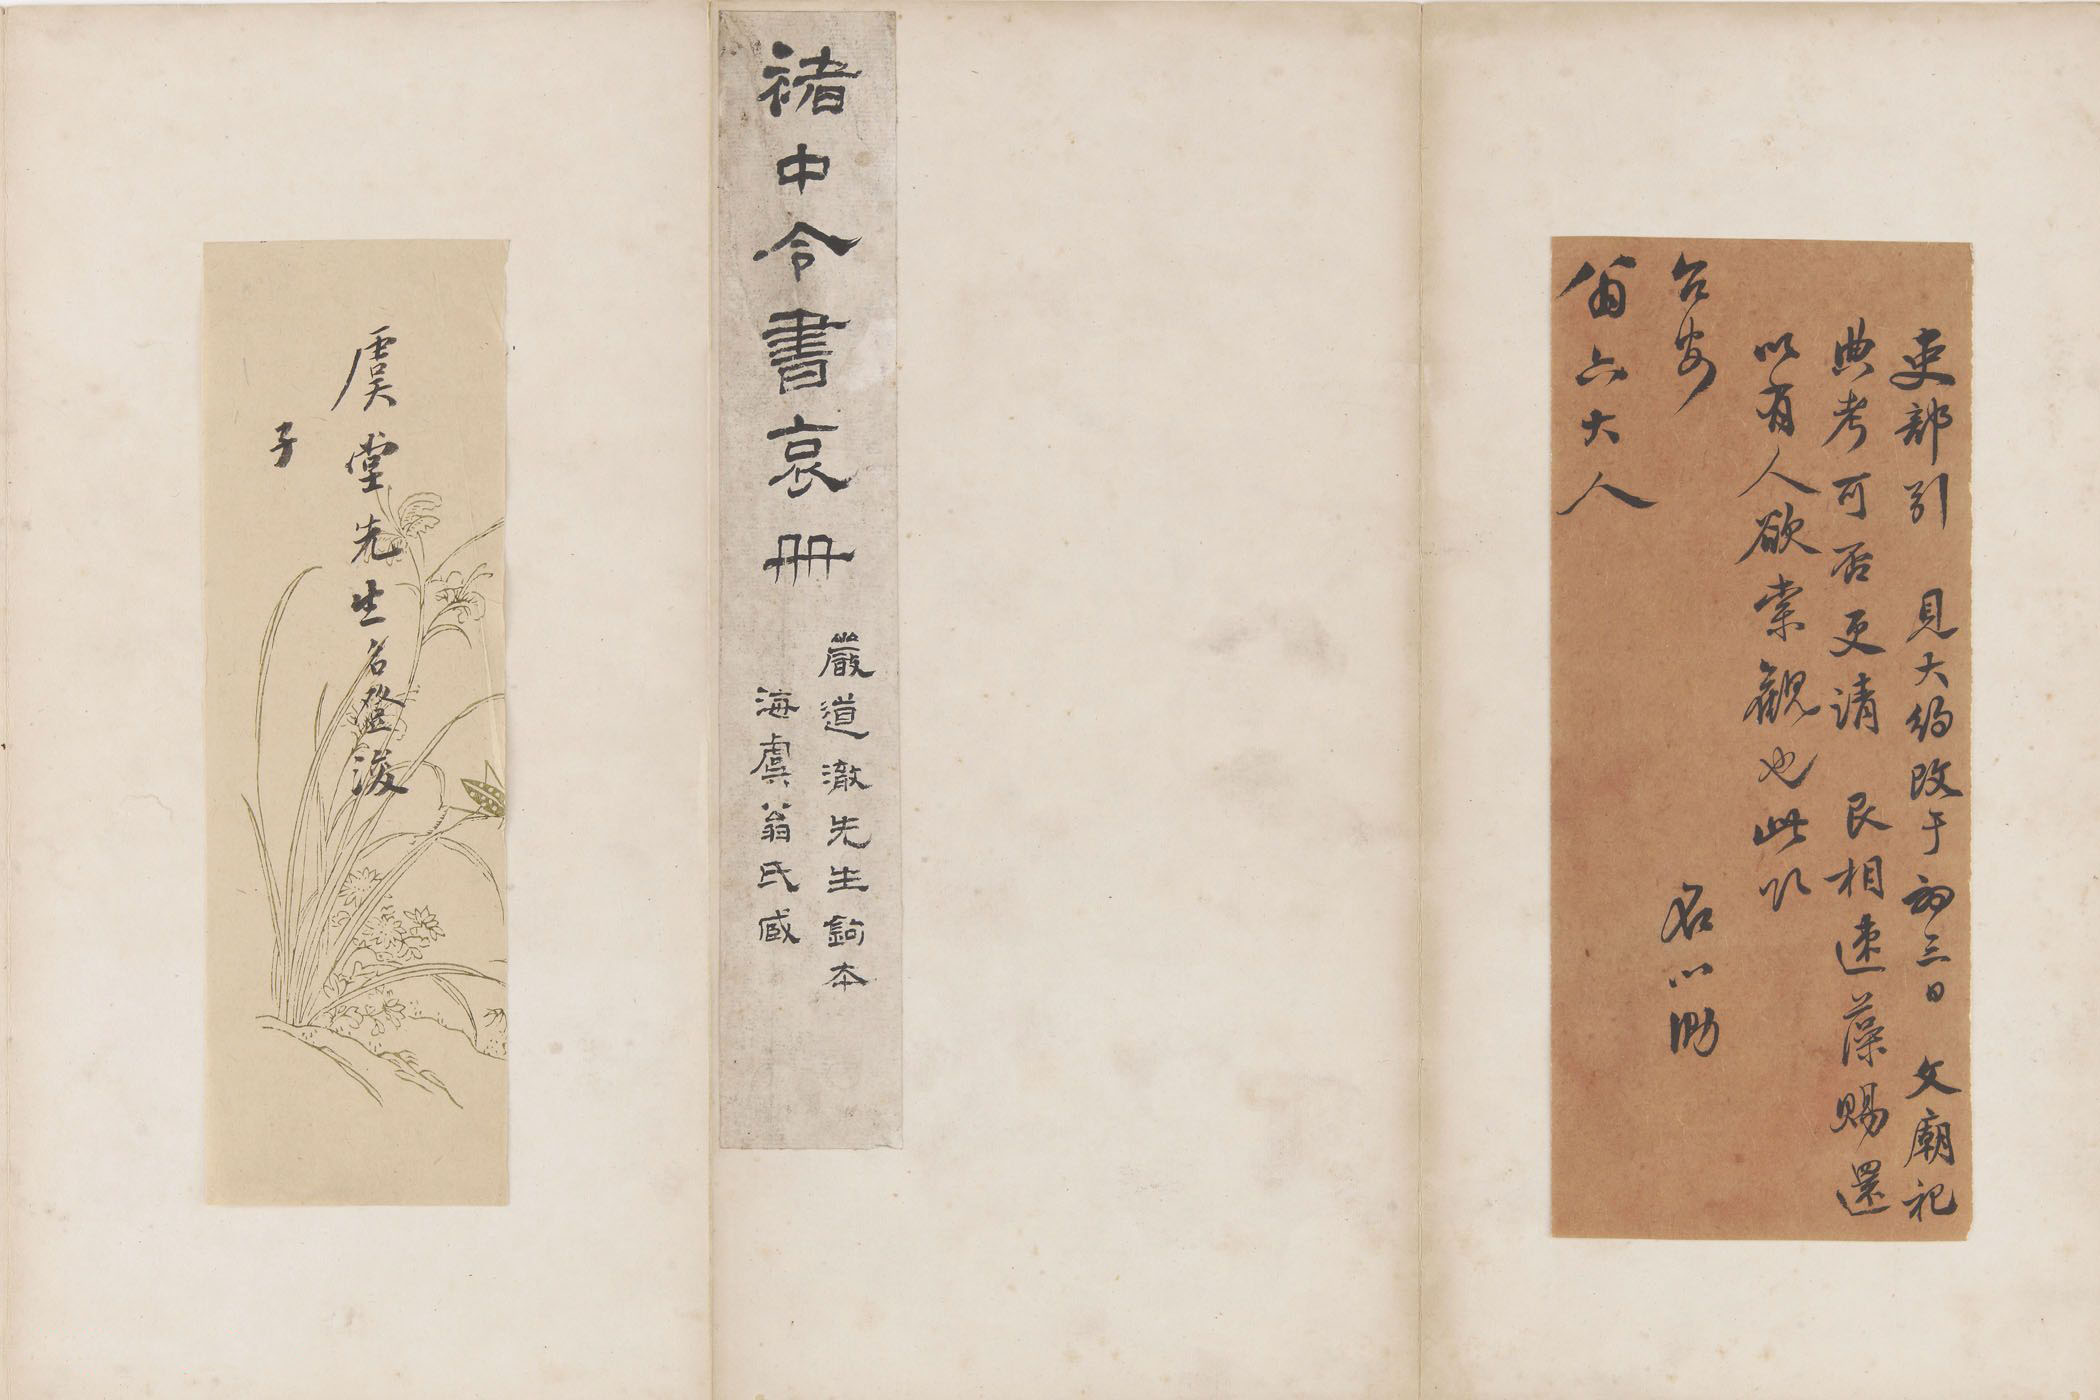 吏部引　見大約改于初三日　文廟祀
典考可否更請　艮相速藻賜還
以有人欲索觀也此頌
台安
名心泐
翁六大人
褚中令書哀冊
嚴道澈先生鉤本
海虞翁氏臧
虞堂先生名登浚
子